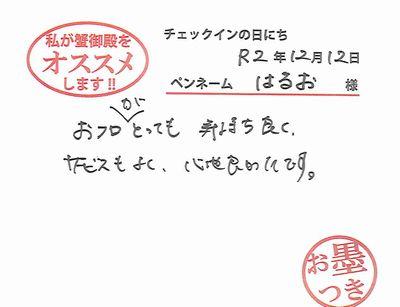 私が蟹御殿を
オススメ
します!!
チェックインの日にち
R2年12月12日
ペンネーム はるお 様
おフロがとっても 気持ち良く、
サービスもよく、心地良かったです。
お墨
つき